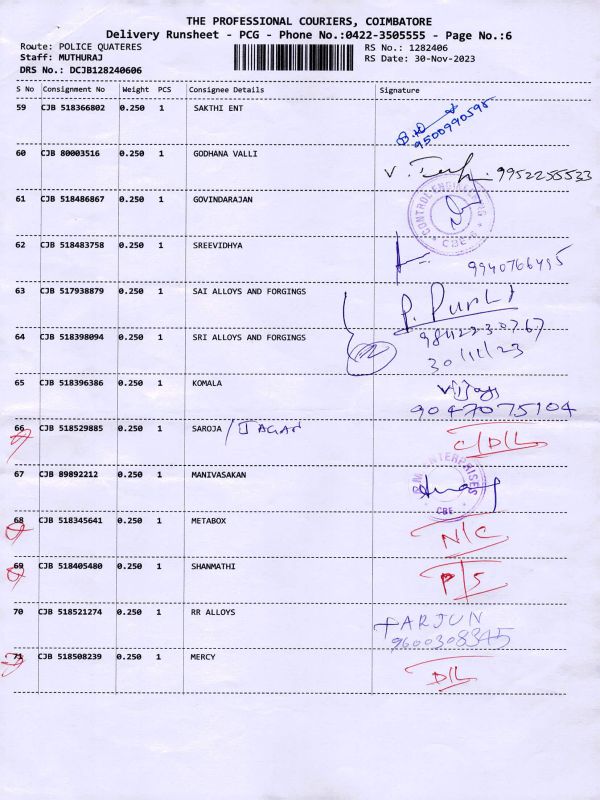 THE PROFESSIONAL COURIERS, COIMBATORE
Delivery Runsheet - PCG - Phone No.:0422-3505555 - Page No.:6
Route: POLICE QUATERES RS No.: 1282406
Staff: MUTHURAJ RS Date: 30-Nov-2023
DRS No.: DCJB128240606
S No Consignment No Weight PCS Consignee Details Signature
59 CJB 518366802 0.250 1 SAKTHI ENT
9500990595
60 CJB 80003516 0.250 1 GODHANA VALLI
9952255533
61 CJB 518486867 0.250 1 GOVINDARAJAN
CONTROL ENGINEERING
CBE
62 CJB 518483758 0.250 1 SREEVIDHYA
9940766495
63 CJB 517938879 0.250 1 SAI ALLOYS AND FORGINGS
64 CJB 518398094 0.250 1 SRI ALLOYS AND FORGINGS
30/11/23
65 CJB 518396386 0.250 1 KOMALA Vijay
9047075104
66 CJB 518529885 0.250 1 SAROJA / JAGAN C/D/L
67 CJB 89892212 0.250 1 MANIVASAKAN
ENTERPRISES
CBE
68 CJB 518345641 0.250 1 METABOX N/C
69 CJB 518405480 0.250 1 SHANMATHI P/S
70 CJB 518521274 0.250 1 RR ALLOYS ARJUN
9600308345
71 CJB 518508239 0.250 1 MERCY D/L